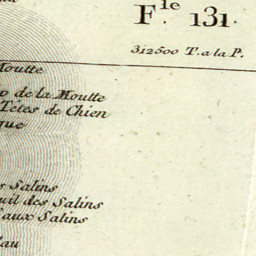 F.le 131.
312500 T. a la P.
Moutte
de la Moutte
Têtes de Chien
que
Salins
uil des Salins
aux Salins
au